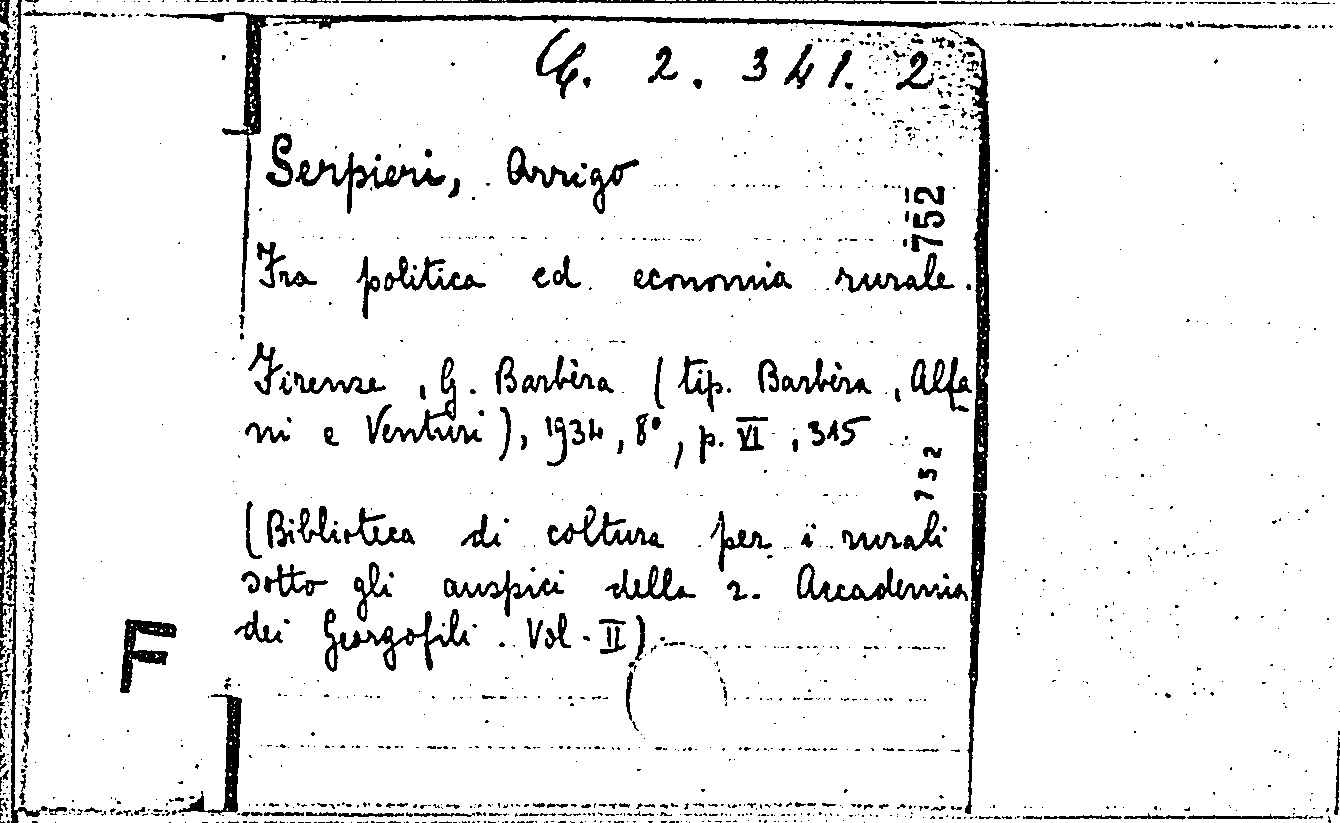 C. 2. 341. 2
Serpieri, Arrigo
752
Fra politica ed economia rurale.
Firenze, G. Barbèra (tip. Barbèra, Alfa
ni e Venturi), 1934, 8°, p. VI, 315
752
(Biblioteca di coltura per i rurali
sotto gli auspici della r. Accademia
dei Georgofili. Vol. II)
F